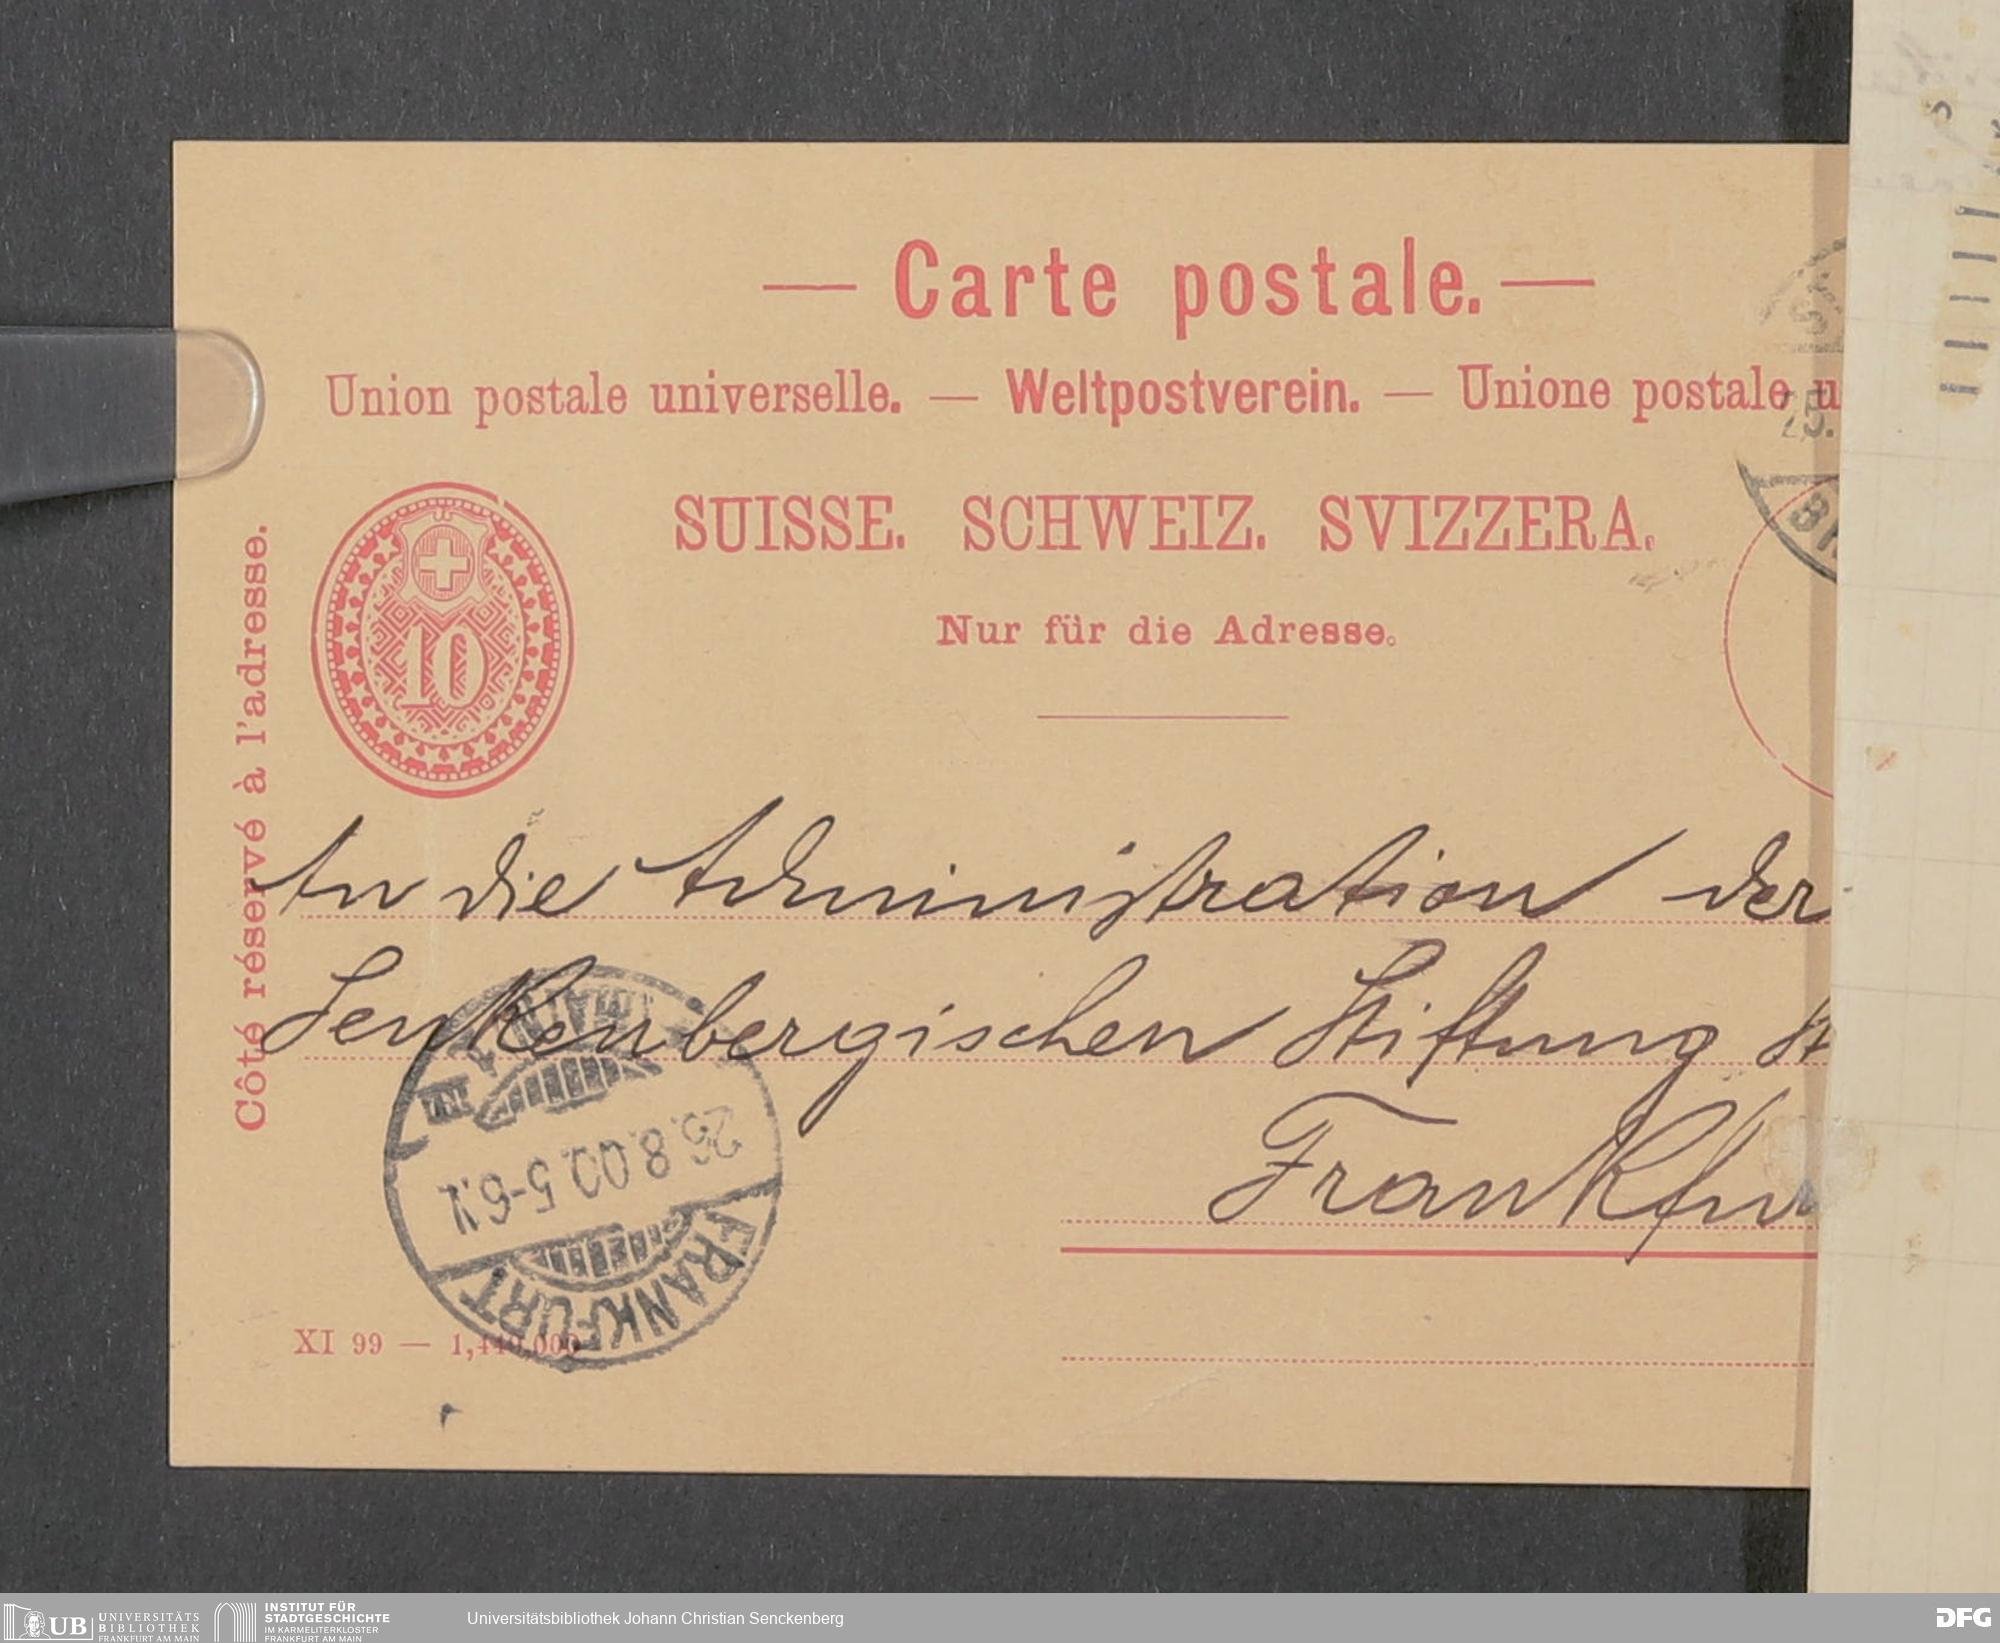 — Carte postale. —
Union postale universelle. — Weltpostverein. — Unione postale u
SUISSE. SCHWEIZ. SVIZZERA.
Nur für die Adresse.
Côté réservé à l'adresse.
10
25.
An die Administration der
Senkenbergischen Stiftung
Frankfu
26.8.00. 5-6N.
FRANKFURT
XI 99 — 1,449,000
UB UNIVERSITÄTS
BIBLIOTHEK
FRANKFURT AM MAIN
INSTITUT FÜR
STADTGESCHICHTE
IM KARMELITERKLOSTER
FRANKFURT AM MAIN
Universitätsbibliothek Johann Christian Senckenberg
DFG